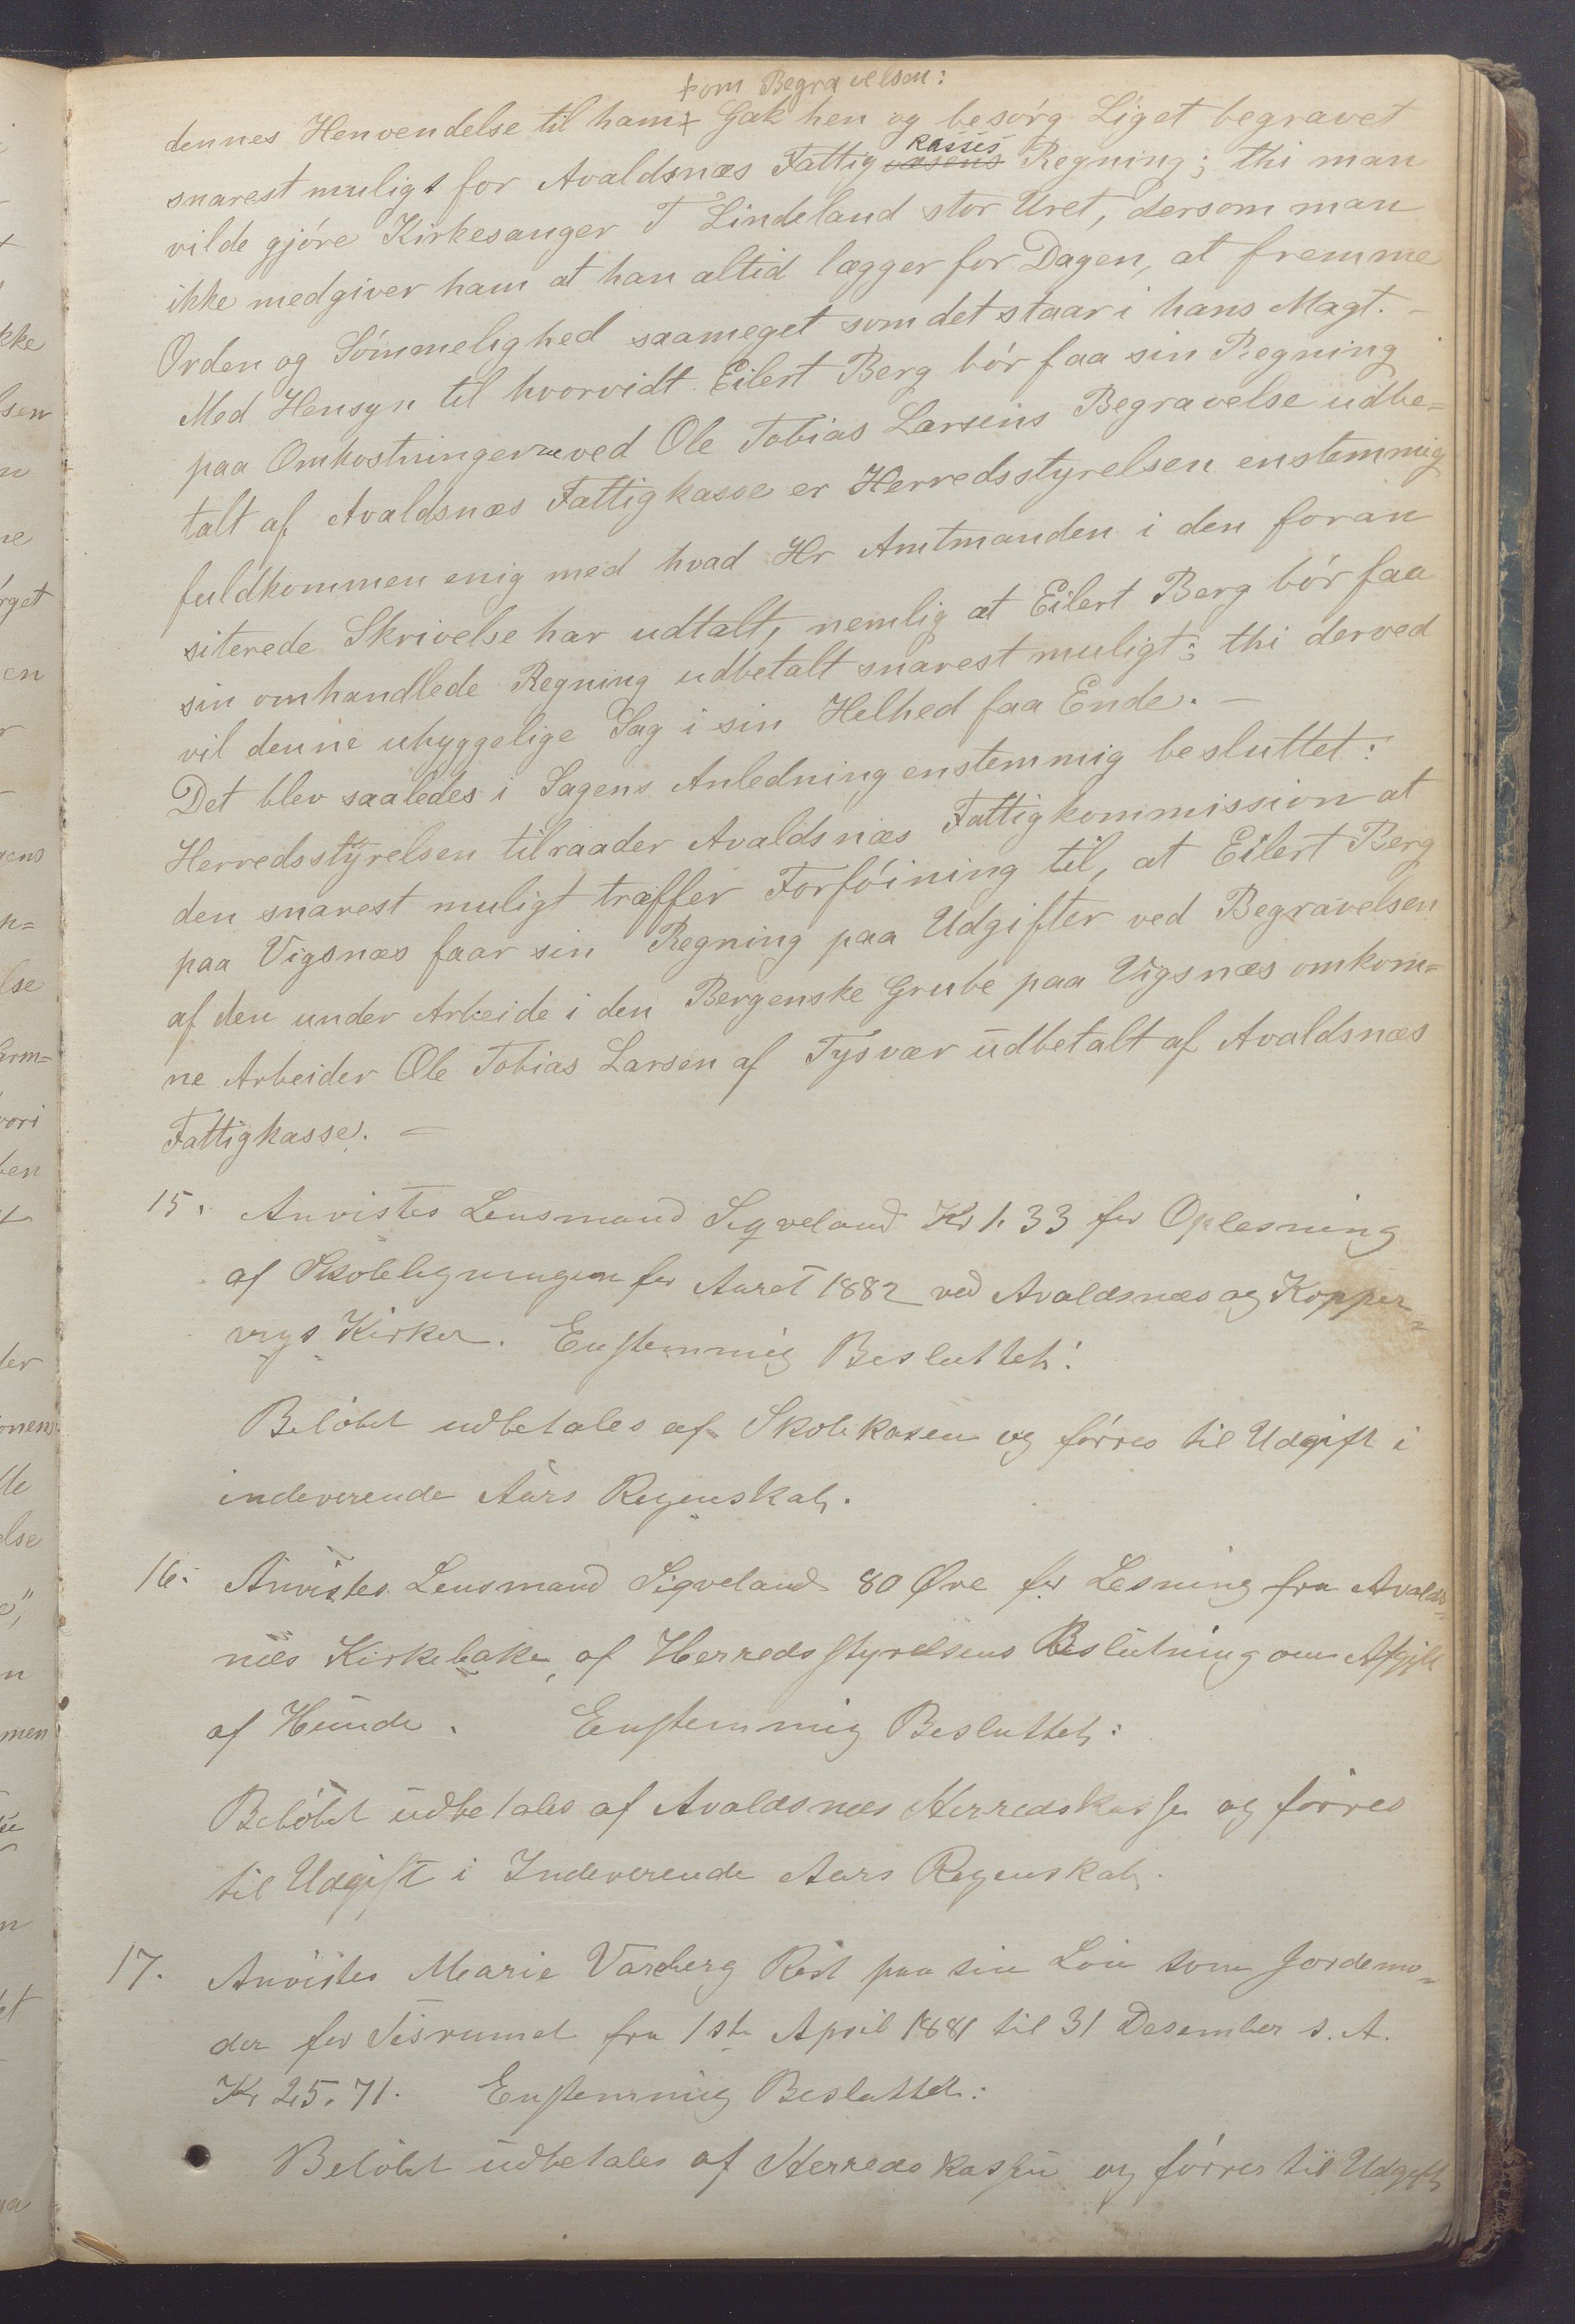 +om Begravelsen:
dennes Henvendelse til ham+ Gak hen og besórg Liget begravet
kasses
snarest muligt for Avaldsnæs Fattigvæsens Regning; thi man
vilde gjóre Kirkesanger T Lindeland stor Uret, dersom man
ikke medgiver ham at han altid lægger for Dagen, at fremme
Orden og Sómmelighed saameget som det staar i hans Magt. –
Med Hensyn til hvorvidt Eilert Berg bór faa sin Regning
paa Omkostningerne ved Ole Tobias Larsens Begravelse udbe=
talt af Avaldsnæs Fattigkasse er Herredsstyrelsen enstemmig
fuldkommen enig med hvad Hr Amtmanden i den foran
siterede Skrivelse har udtalt, nemlig at Eilert Berg bór faa
sin omhandlede Regning udbetalt snarest muligt; thi derved
vil denne uhyggelige Sag i sin Helhed faa Ende. –
Det blev saaledes i Sagens Anledning enstemmig besluttet:
Herredsstyrelsen tilraader Avaldsnæs Fattigkommission at
den snarest muligt træffer Forfóining til, at Eilert Berg
paa Vigsnæs faar sin Regning paa Udgifter ved Begravelsen
af den under Arbeide i den Bergenske Grube paa Vigsnæs omkom=
ne Arbeider Ole Tobias Larsen af Tysvær udbetalt af Avaldsnæs
Fattigkasse. –
15. Anvistes Lensmand Sigveland Kr 1.33 for Oplesning
af Skoleligningen for Aaret 1882 ved Avaldsnæs og Kopper=
vigs Kirker. Enstemmig Besluttet:
Belóbet udbetales af Skolekasen og fórres til Udgift i
indeverende Aars Regenskab.
16. Anvistes Lensmand Sigveland 80 Øre for Lesning fra Avalds=
næs Kirkebake af Herredsstyrelsens Beslutning om Afgift
af Hunde. Enstemmig Besluttet:
Belóbet udbetales af Avaldsnæs Herredskasse og fórres
til Udgift i Indeverende Aars Regenskab.
17. Anvistes Marie Vareberg Rest paa sin Lón som Jordemo=
der for fra 1ste April 1881 til 31 Desember s. A.
Kr 25.71. Enstemmig Besluttet:
Belóbet udbetales af Herredskassen og fórres til Udgift